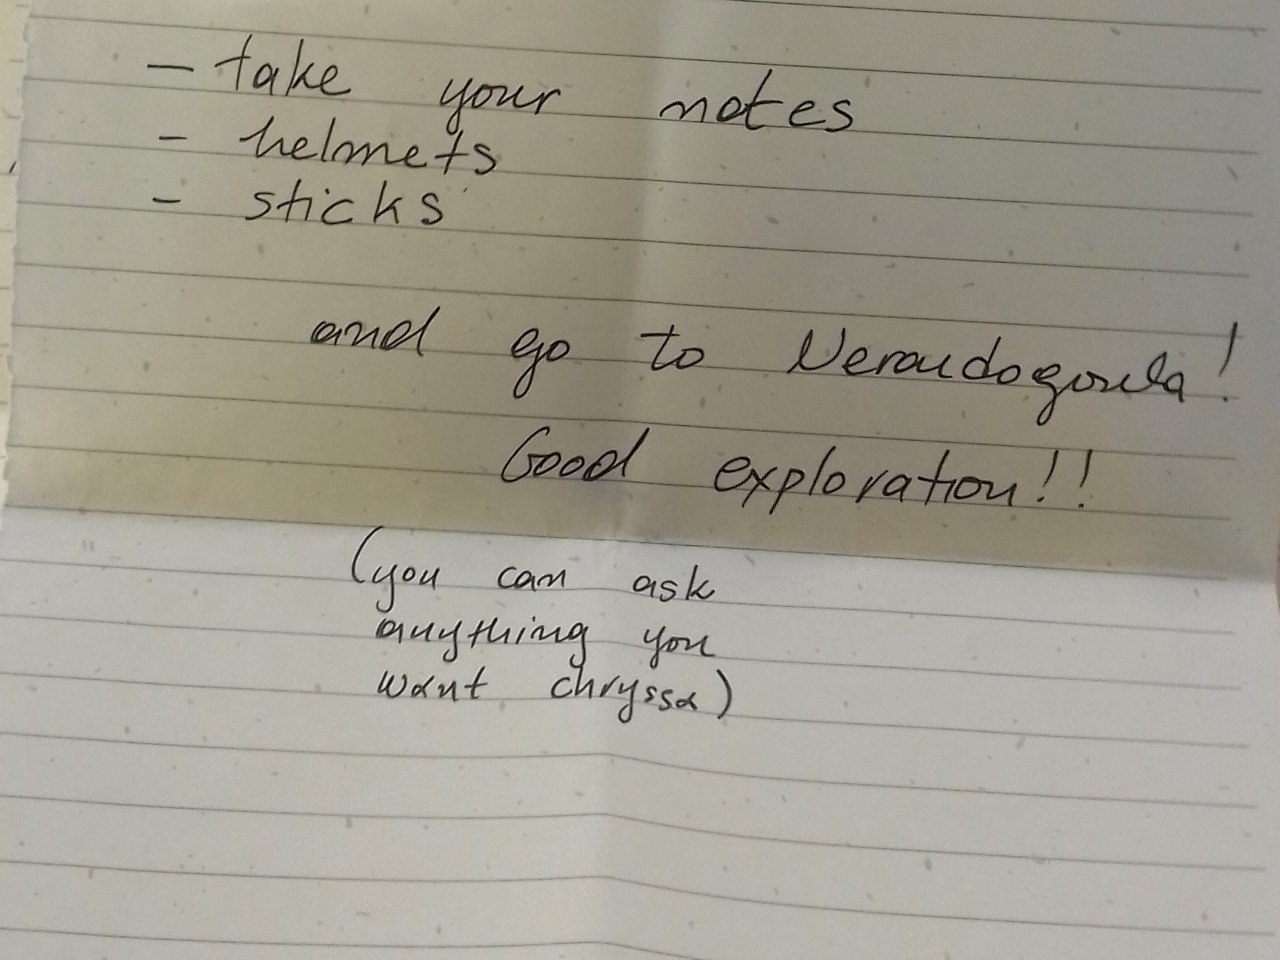 - take your notes
- helmets
- sticks
and go to Neraidogoula!
Good exploration!!
(you can ask
anything you
want chryssa)